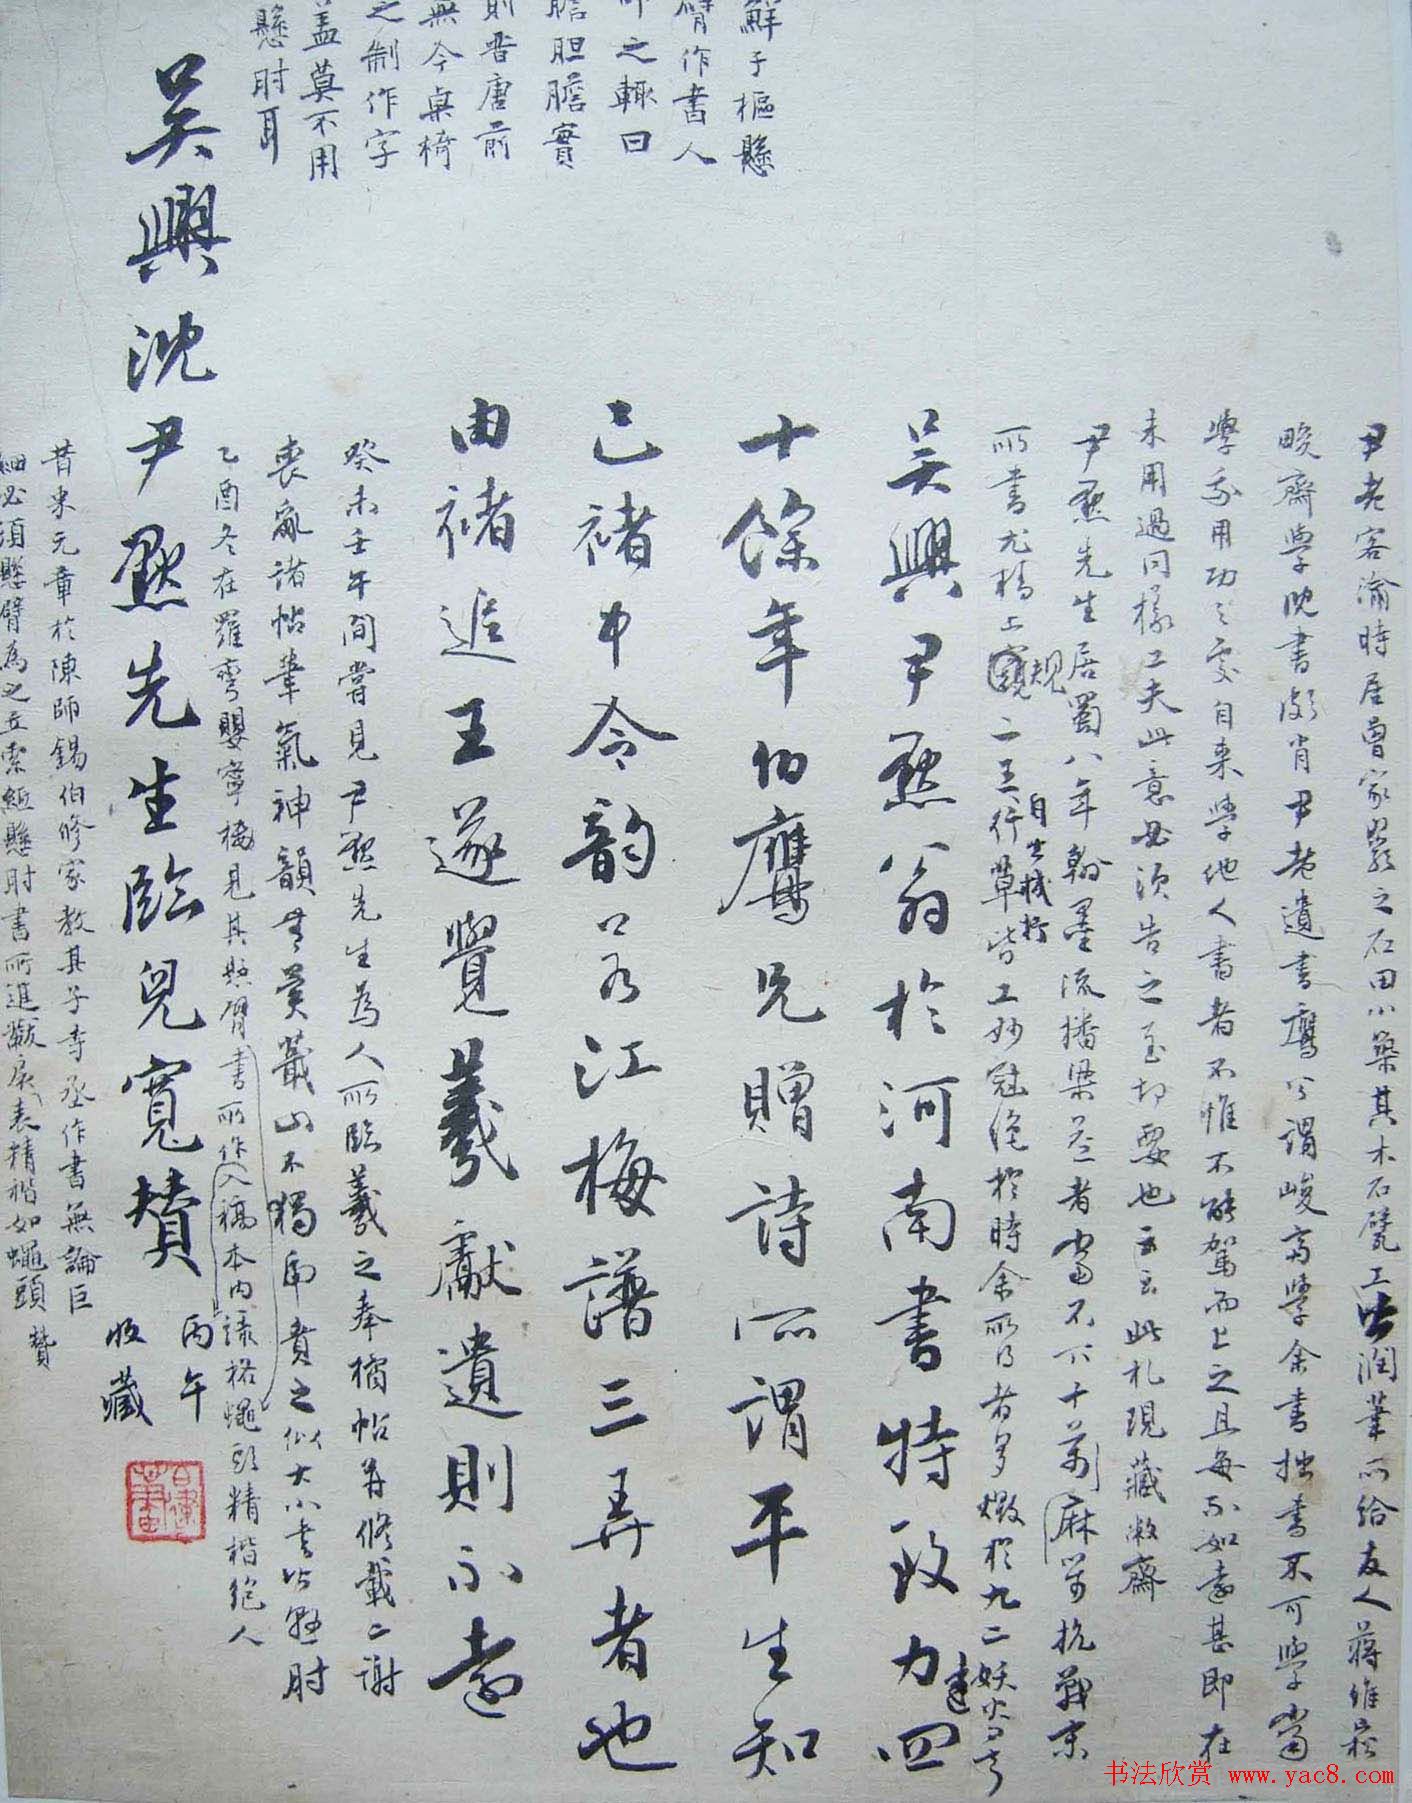 尹老客渝時居曾家岩之石田小築其木石甓工也潤筆而給友人蔣維崧
峻齋學沈書頗肖尹老遺書鷹兮謂峻高學余書拙書不可學當
學我用功之處自来學他人書者不惟不能駕而上之且每不如遠甚即在
未用過同樣工夫此意必須告之至切要也云云此札現藏敝齋
尹默先生居蜀八年翰墨流播梁益者當不下十萬麻萬抗戰末
所書尤精上窺規二王行草皆工妙冠絕於時余所得者多燬於九二妖火
吳興尹默翁於河南書特致力四
十餘年伯鷹兄贈詩所謂平生知
己褚中令韵若江梅譜三弄者也
由褚追王遂覺羲獻遺則不遠
癸未壬午間嘗見尹默先生為人所臨羲之奉橘帖并修載二謝
喪亂諸帖筆氣神韻無異蕺山不獨郁貴之似大小書皆懸肘
乙酉冬在羅彎嬰寧樓見其懸臂書所作入稿本內諒格蠅頭精楷絕人
吳興沈尹默先生臨兒寬贊
丙午
收藏
昔米元章於陳師錫伯修家教其子寺丞作書無論巨
細必須懸臂為之立索紙懸肘書所進黻扆表精楷如蠅頭贊
鮮于樞懸
臂作書人
之輙曰
膽胆膽實
則晋唐前
無今桌椅
之制作字
盖莫不用
懸肘耳
书法欣赏 www.yac8.com